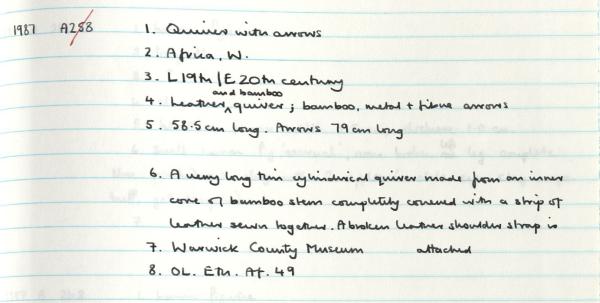 1987 A258 1. Quiver with arrows
2. Africa, W.
3. L19th/E 20th century
4. Leather and bamboo quiver; bamboo, metal + fibre arrows
5. 58.5cm long. Arrows 79cm long
6. A very long thin cylindrical quiver made from an inner
core of bamboo stem completely covered with a strip of
leather sewn together. A broken leather shoulder strap is
7. Warwick County Museum attached
8. OL. Eth. Af. 49